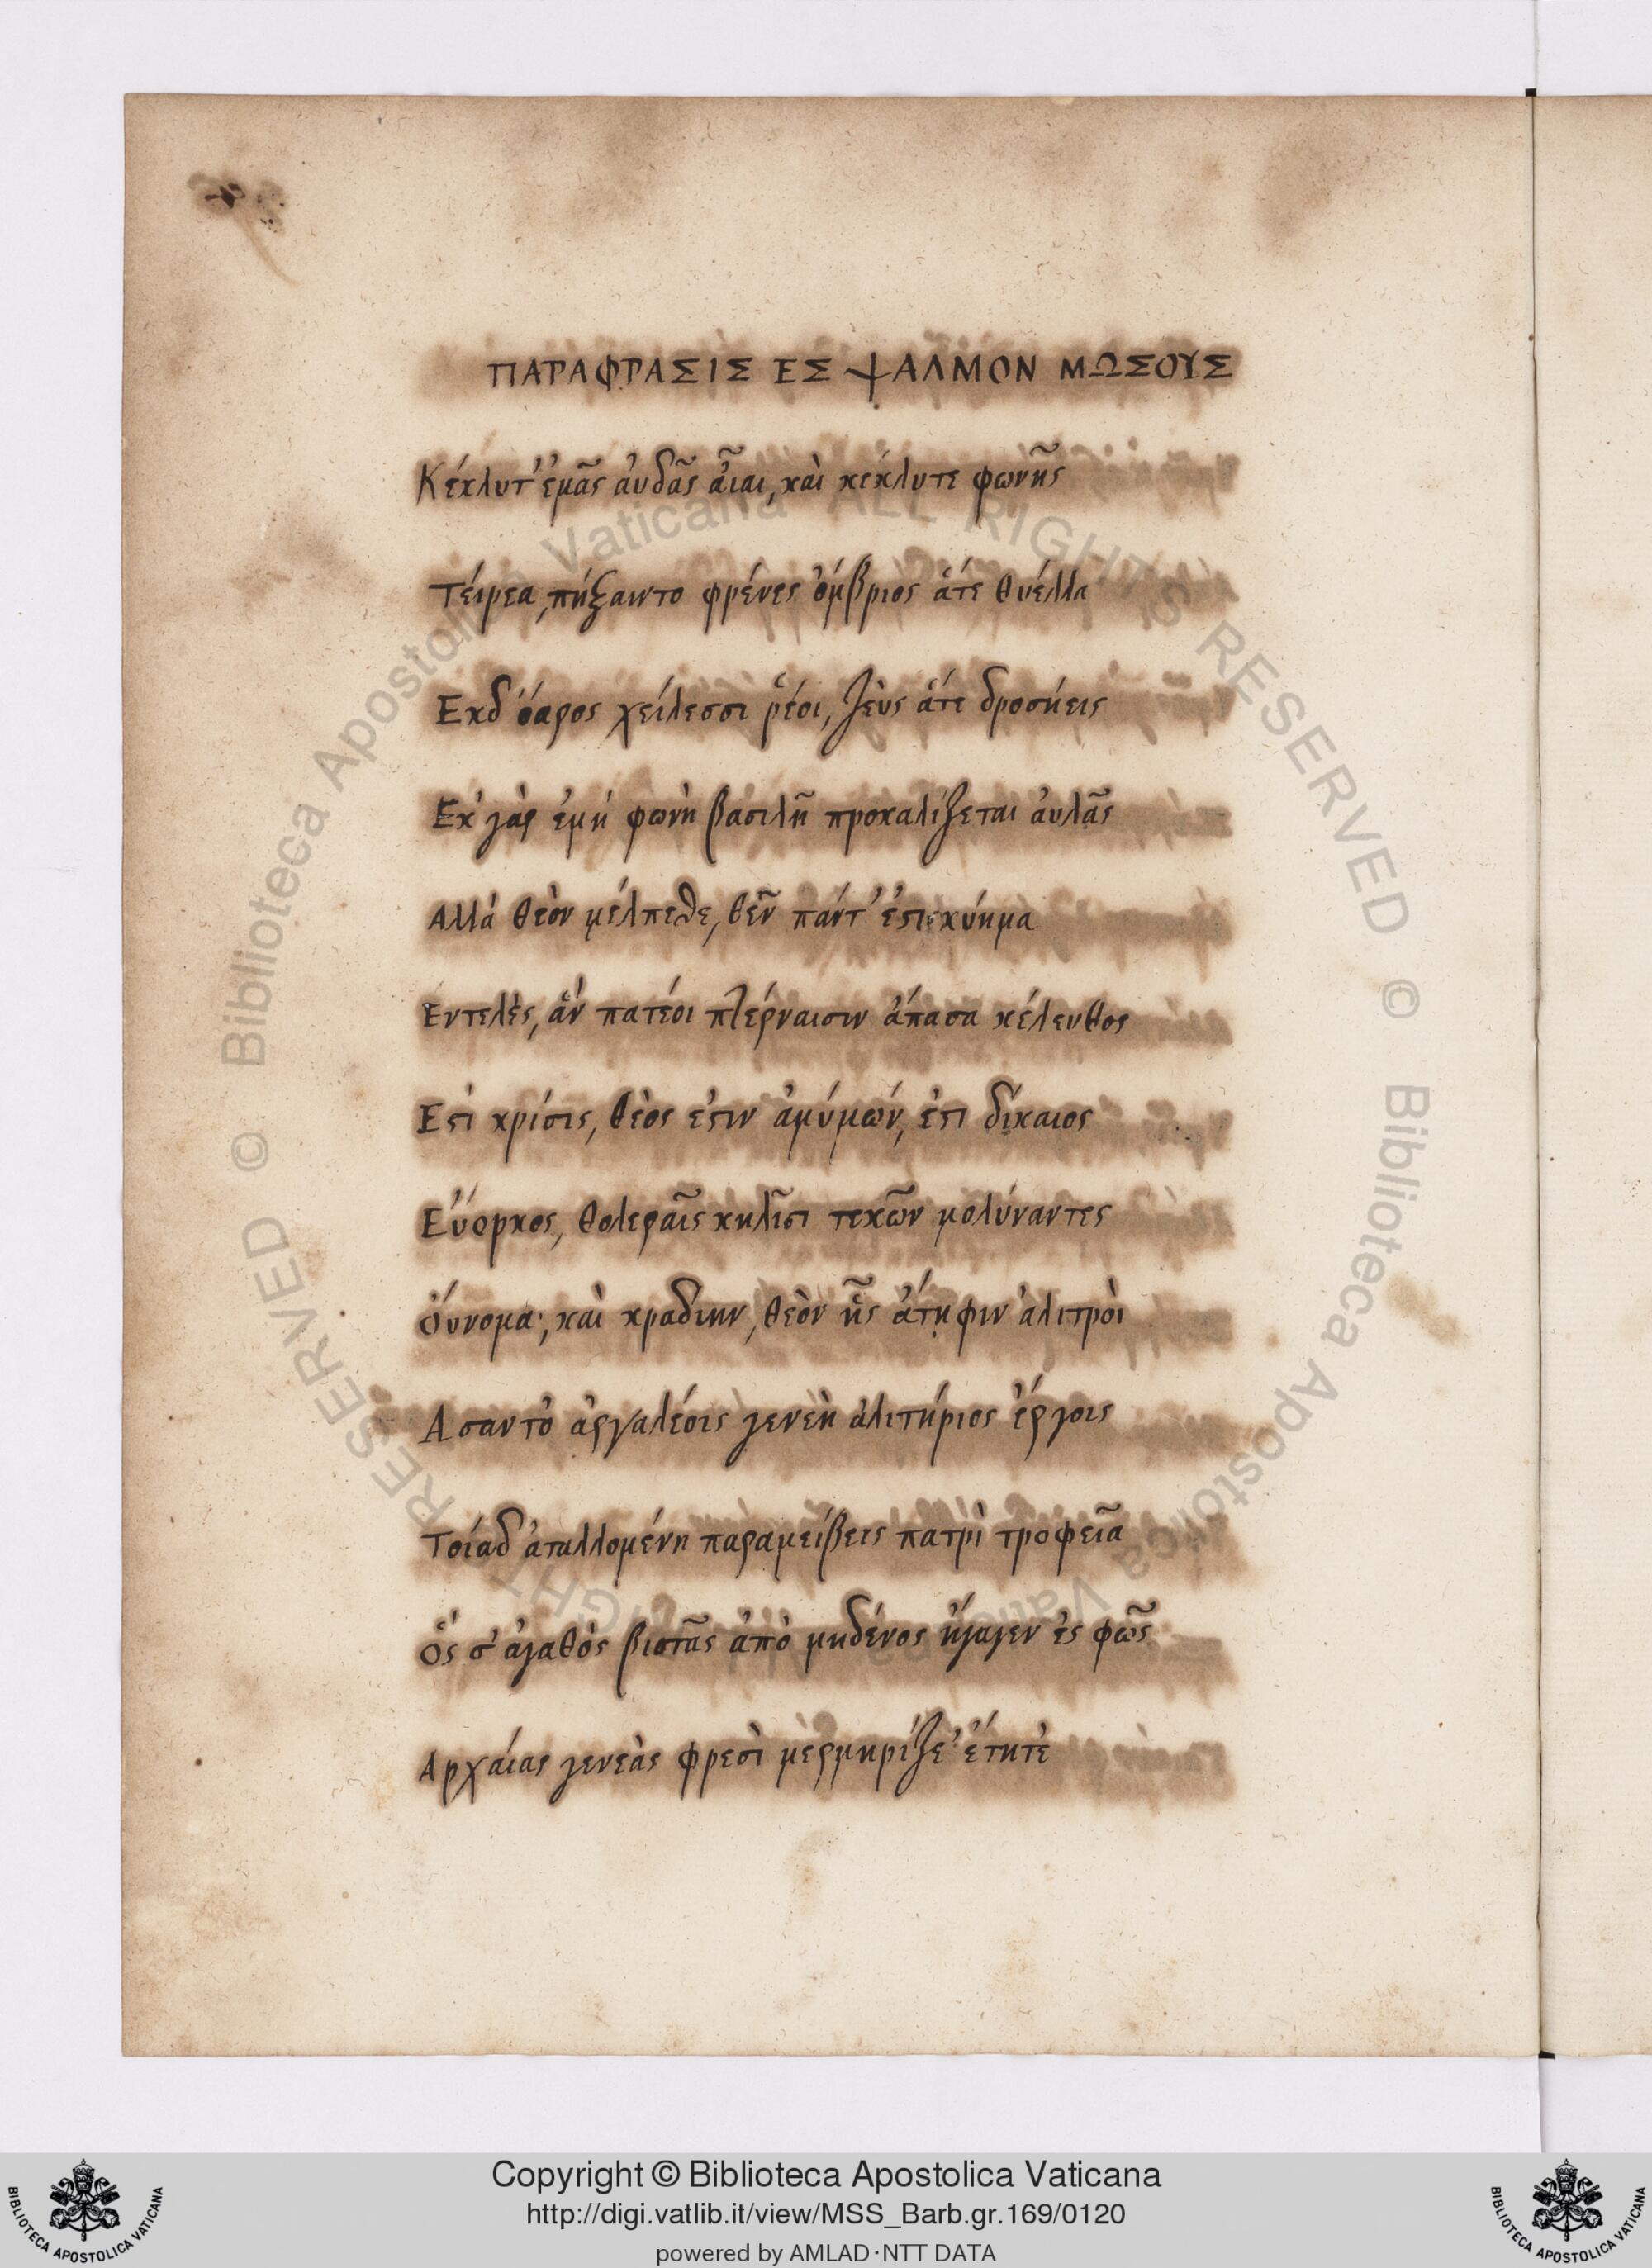 ΠΑΡΑΦΡΑΣΙΣ ΕΣ ΨΑΛΜΟΝ ΜΩΣΟΥΣ
Κέκλυτ' ἐμᾶς ἀυδᾶς ἆιαι, καὶ κεκλυτε φωνῆς
Τείρεα, πήξαιντο φρένες ὀμβριος ἅτε θυέλλα
Εκδ' ὄαρος χείλεσσι ῥέοι, Ζεὺς ἅτε δροσήεις
Εκ γὰρ ἐμὴ φωνὴ βασιλῆ προκαλίζεται ἀυλᾶς
Αλλὰ θεὸν μέλπεσθε, θεῦ πάντ' ἐστι κύημα
Εντελὲς, ἂν πατέοι πτέρναισιν ἅπασα κέλευθος
Εστὶ κρίσις, θεὸς ἐστιν ἀμύμων, ἐστι δίκαιος
Εὔορκος, θολεραῖς κηλῖσι τεκῶν μολύναντες
Ὀύνομα, καὶ κραδιην, θεὸν ἧς ἄτηφιν ἀλιτρὸι
Ασαντὸ ἀργαλέοις γενεὴ ἀλιτήριος ἔργοις
Τοίαδ ἀταλλομένη παραμείβεις πατρὶ τροφεῖα
Ὅς σ' ἀγαθὸς βιοτᾶς ἀπὸ μηδένος ἤγαγεν ἐς φῶς
Αρχαίας γενεὰς φρεσὶ μερμηρίζε' ἔτητὲ
© Biblioteca Apostolica Vaticana ALL RIGHTS RESERVED © Biblioteca Apostolica Vaticana ALL RIGHTS RESERVED
Copyright © Biblioteca Apostolica Vaticana
http://digi.vatlib.it/view/MSS_Barb.gr.169/0120
powered by AMLAD·NTT DATA
BIBLIOTECA APOSTOLICA VATICANA
BIBLIOTECA APOSTOLICA VATICANA